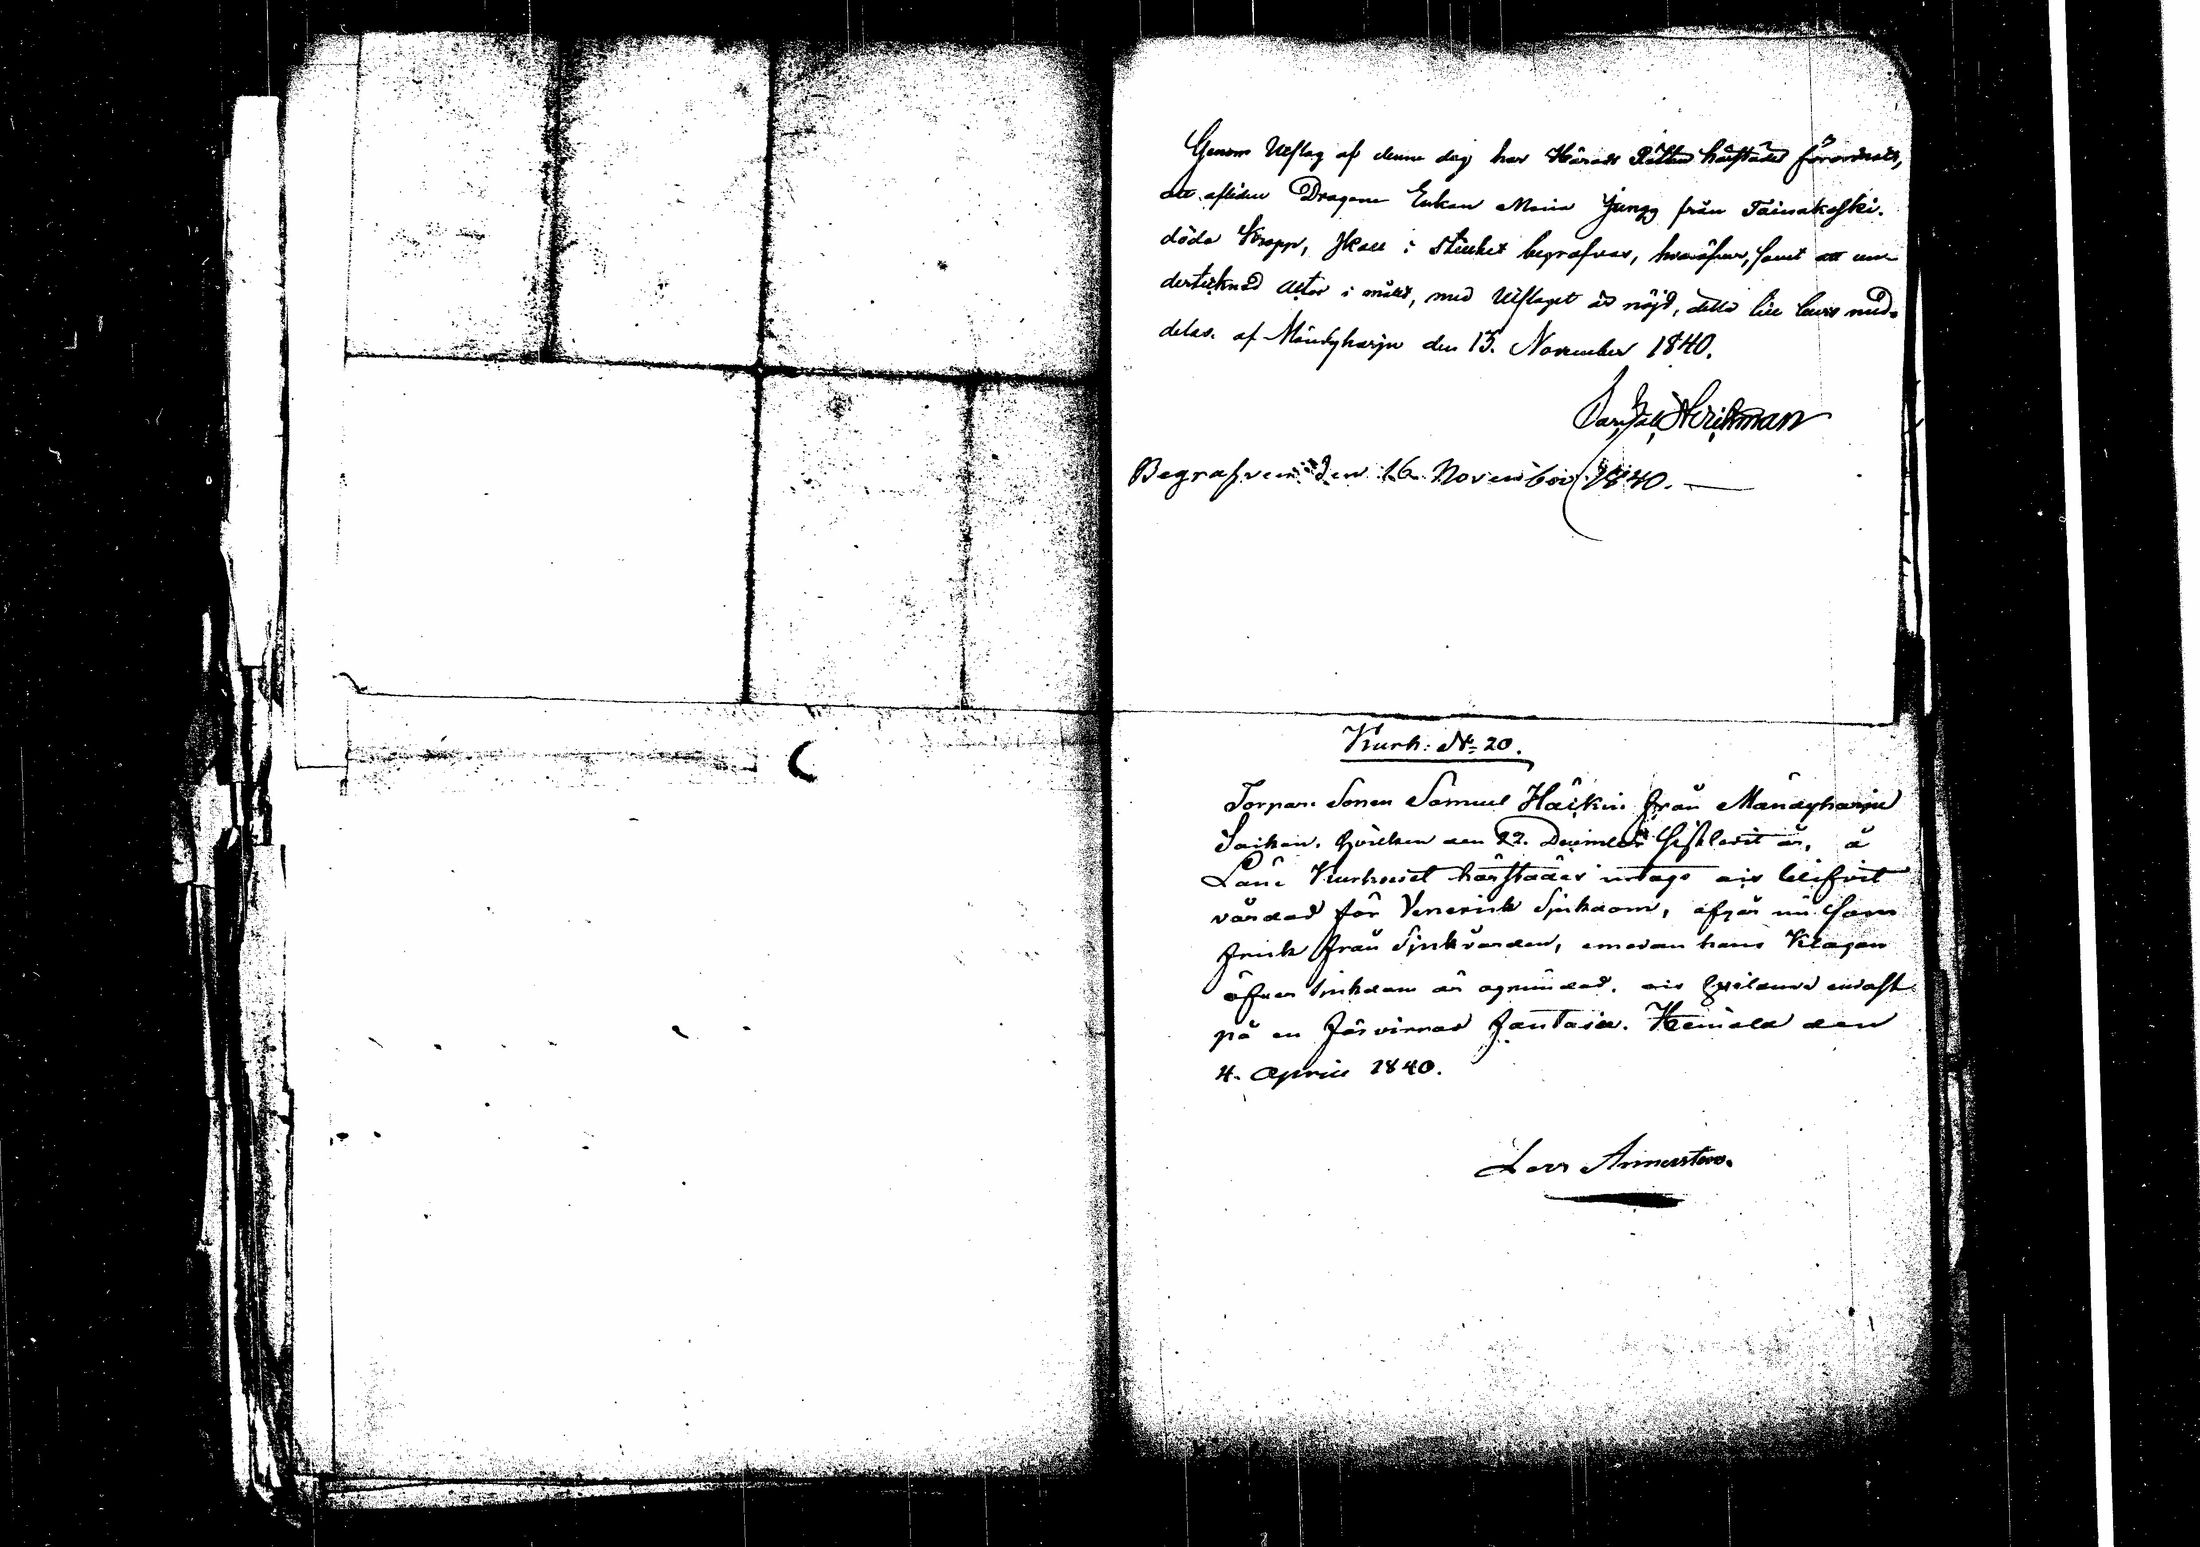 Genom Utslag af denne dag har Härads Rätten härstädes förordnat,
att aflidne Dragone Enkan Maria Jungg från Tainakoski.
döda Kropp, skall i stillhet begrafvas, hvaröfver, samt att un-
dertecknad Actor i målet, med Utslaget är nöjd, detta till bevis med-
delas. af Mändyharju den 13. November 1840.
Begrafven den 16 November 1840. —
Kurh: No 20.
Torpare Sonen Samuel Häikin från Mändyharju
Socken, hvilken den 22. December sistledit år, å
Läns Kurhuset härstädes intags och blifvit
vårdad för Venerisk Sjukdom, afgår nu som
frisk från Sjukvården, emedan hans Klagan
öfver Sjukdom är ogrundad, och hvilande endast
på en förvirrad fantasie. Heinola den
4. April 1840.
Lars